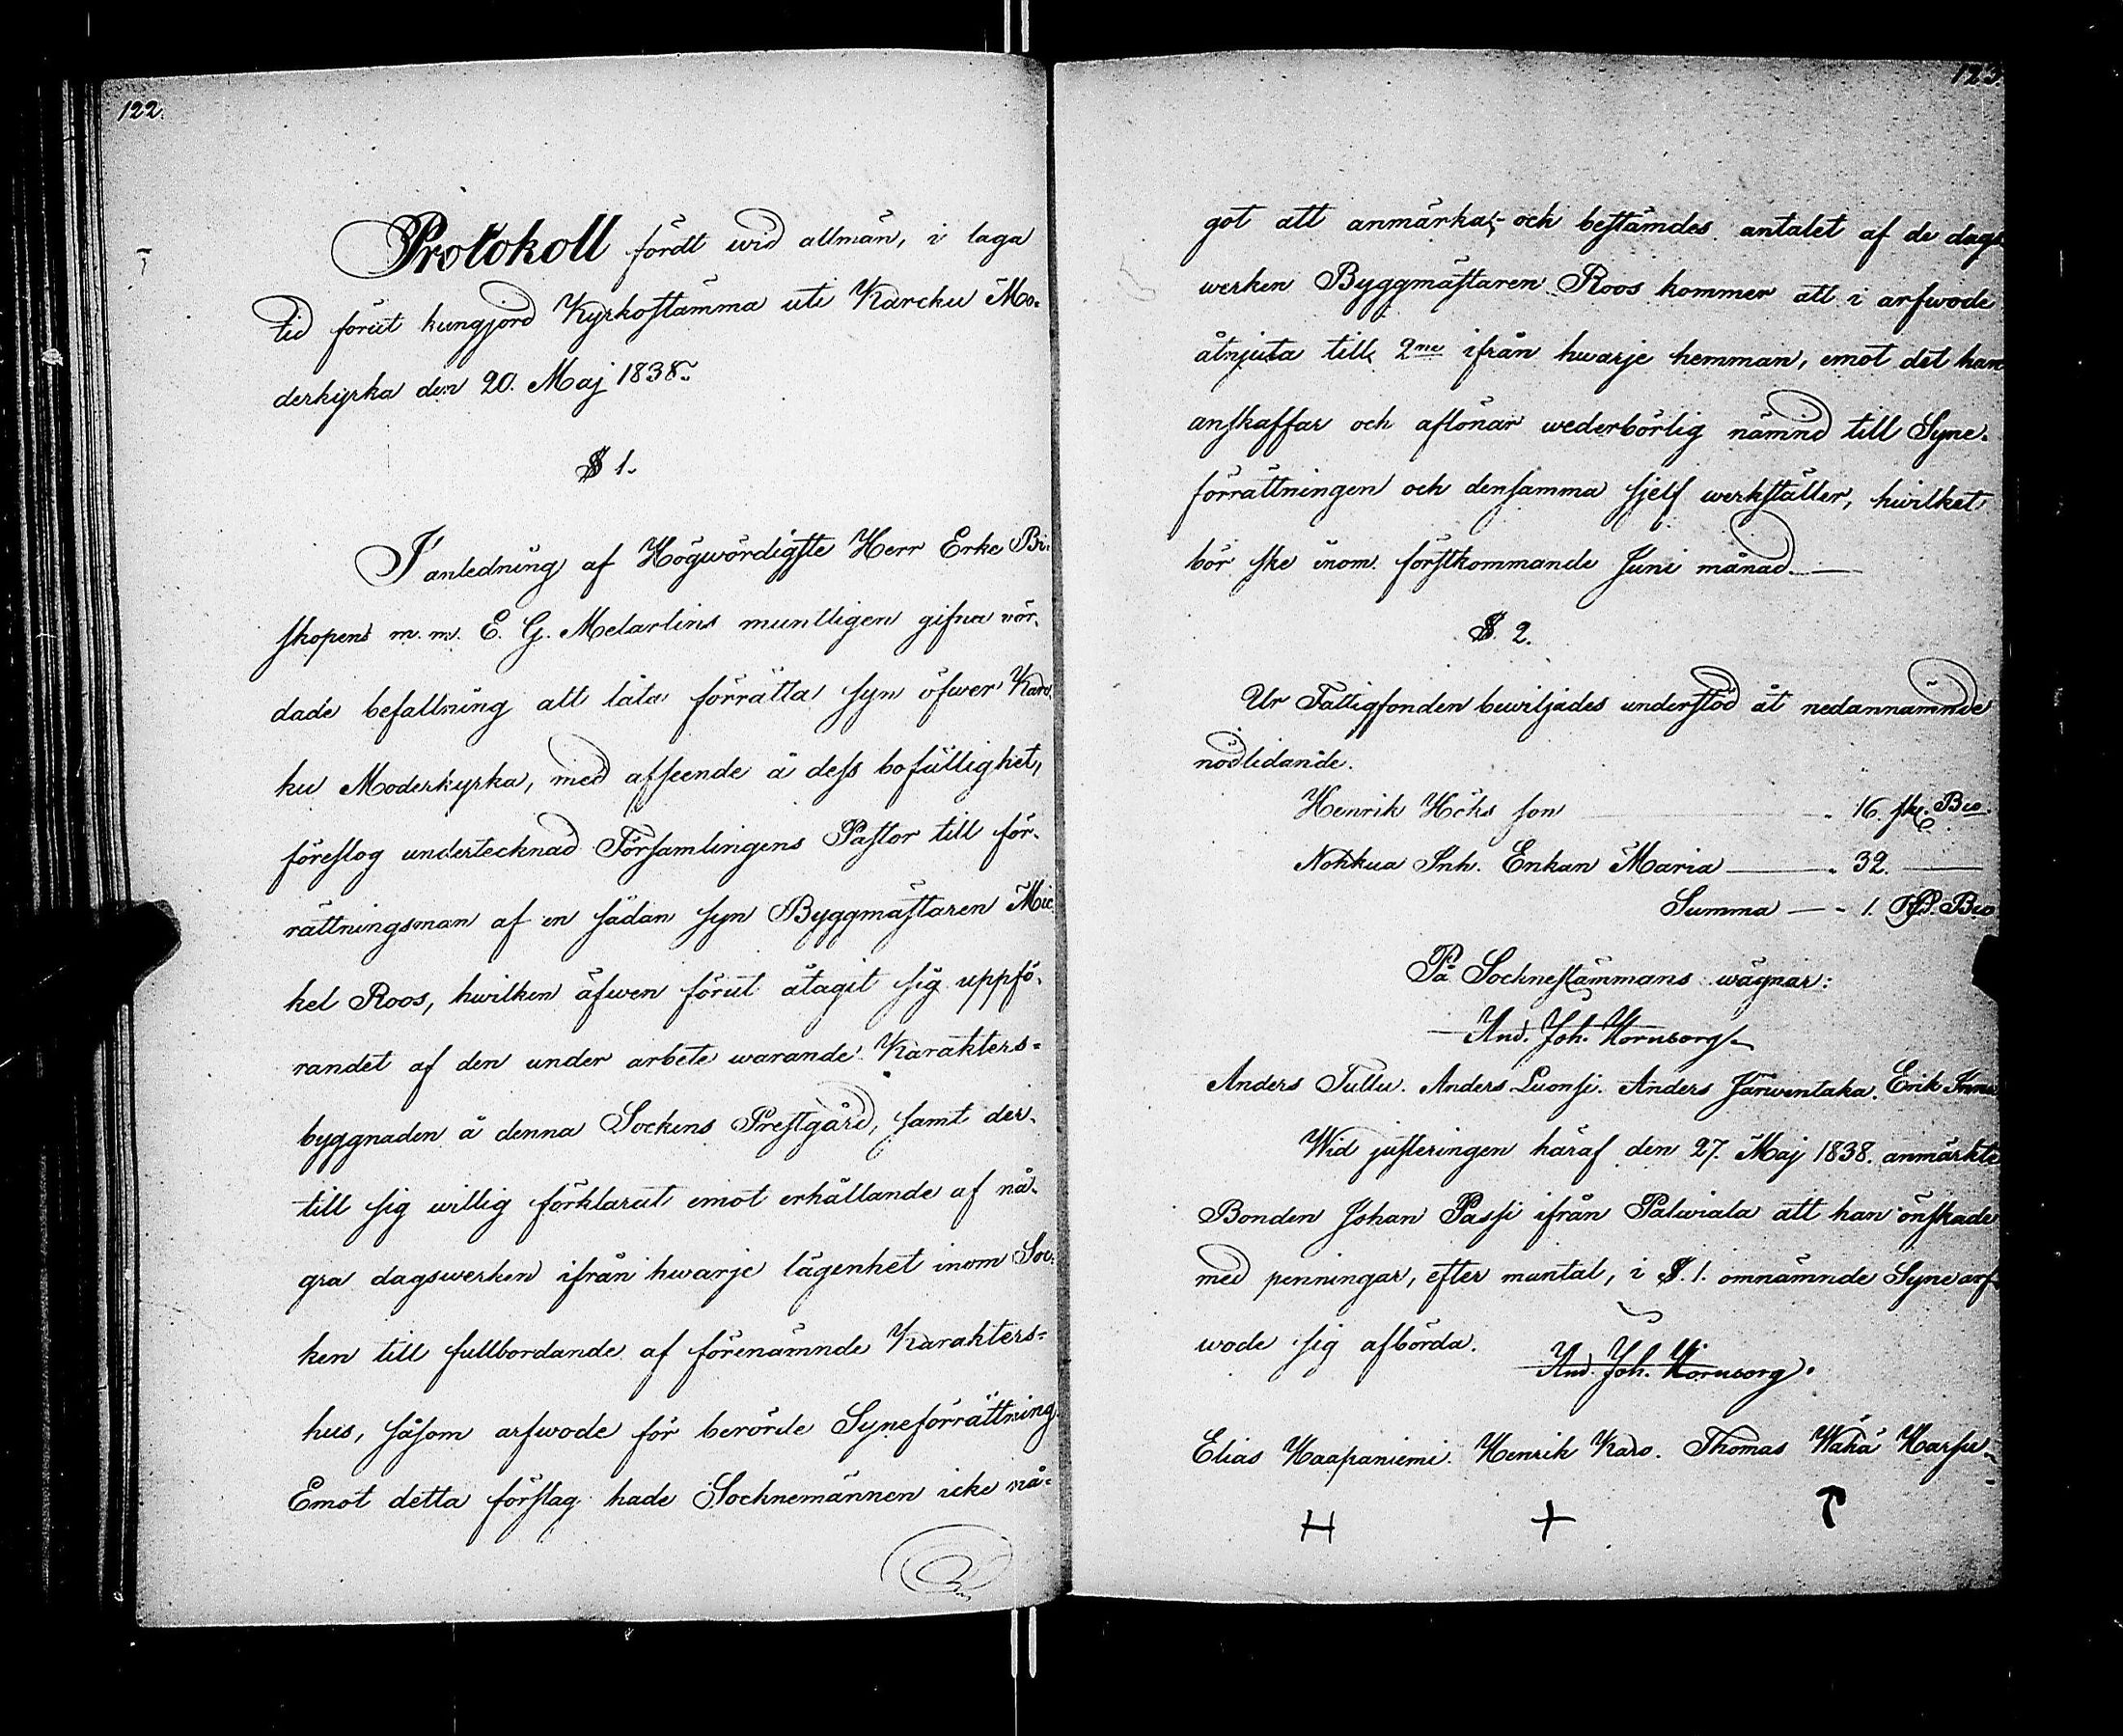 122.
Protokoll fördt wid allmän, i laga
tid förut kungjord Kyrkostämma uti Karcku Mo-
derkyrka den 20. Maj 1838.
§ 1.
I anledning af Högwördigste Herr Erke Bi-
skopens m. m. E. G. Melartins muntligen gifna vör-
dade befallning att låta förrätta syn öfwer Kar-
ku Moderkyrka, med afseende å dess bofällighet,
föreslog undertecknad Församlingens Pastor till för-
rättningsman af en sådan syn Byggmästaren Mic-
kel Roos, hwilken äfwen förut åtagit sig uppfö-
randet af den under arbete warande Karakters-
byggnaden å denna Sockens Prestgård, samt der-
till sig willig förklarat emot erhållande af nå-
gra dagswerken ifrån hwarje lägenhet inom Soc-
ken till fullbordande af förenämnde Karakters-
hus, såsom arfwode för berörde Syneförrättning
Emot detta förslag hade Socknemännen icke nå-
123.
got att anmärka,- och bestämdes antalet af de dags
werken Byggmästaren Roos kommer att i arfwode
åtnjuta till 2ne ifrån hwarje hemman, emot det han
anskaffar och aflönar wederbörlig nämnd till Syne-
förrättningen och densamma sjelf werkställer, hwilket
bör ske inom förstkommande Juni månad.
§. 2.
Ur Fattigfonden bewiljades understöd åt nedannämnde
nödlidande.
Henrik Höks son 16. sk. Bco.
Nohkua Inh. Enkan Maria 32.
Summa 1. RD. Bco
På Socknestämmans wägnar:
And. Joh. Hornborg
Anders Tullu. Anders Luonsi. Anders Järwentaka. Erik
Wid justeringen häraf den 27. Maj 1838. anmärkte
Bonden Johan Passi ifrån Palwiala att han önskade
med penningar, efter mantal, i §. 1. omnämnde Synearf-
wode sig afbörda.
And. Joh. Hornborg.
Elias Haapaniemi. Henrik Karo. Thomas Wähä Harsu
H + ↑